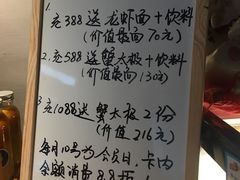 1.
充388送龙虾面+饮料
(价值最高70元)
2.充588送蟹太极+饮料
(价值最高130元)
3.充1088送蟹太极2份
(价值216元)
每月10号为会员日,卡内
余额消费8.8折